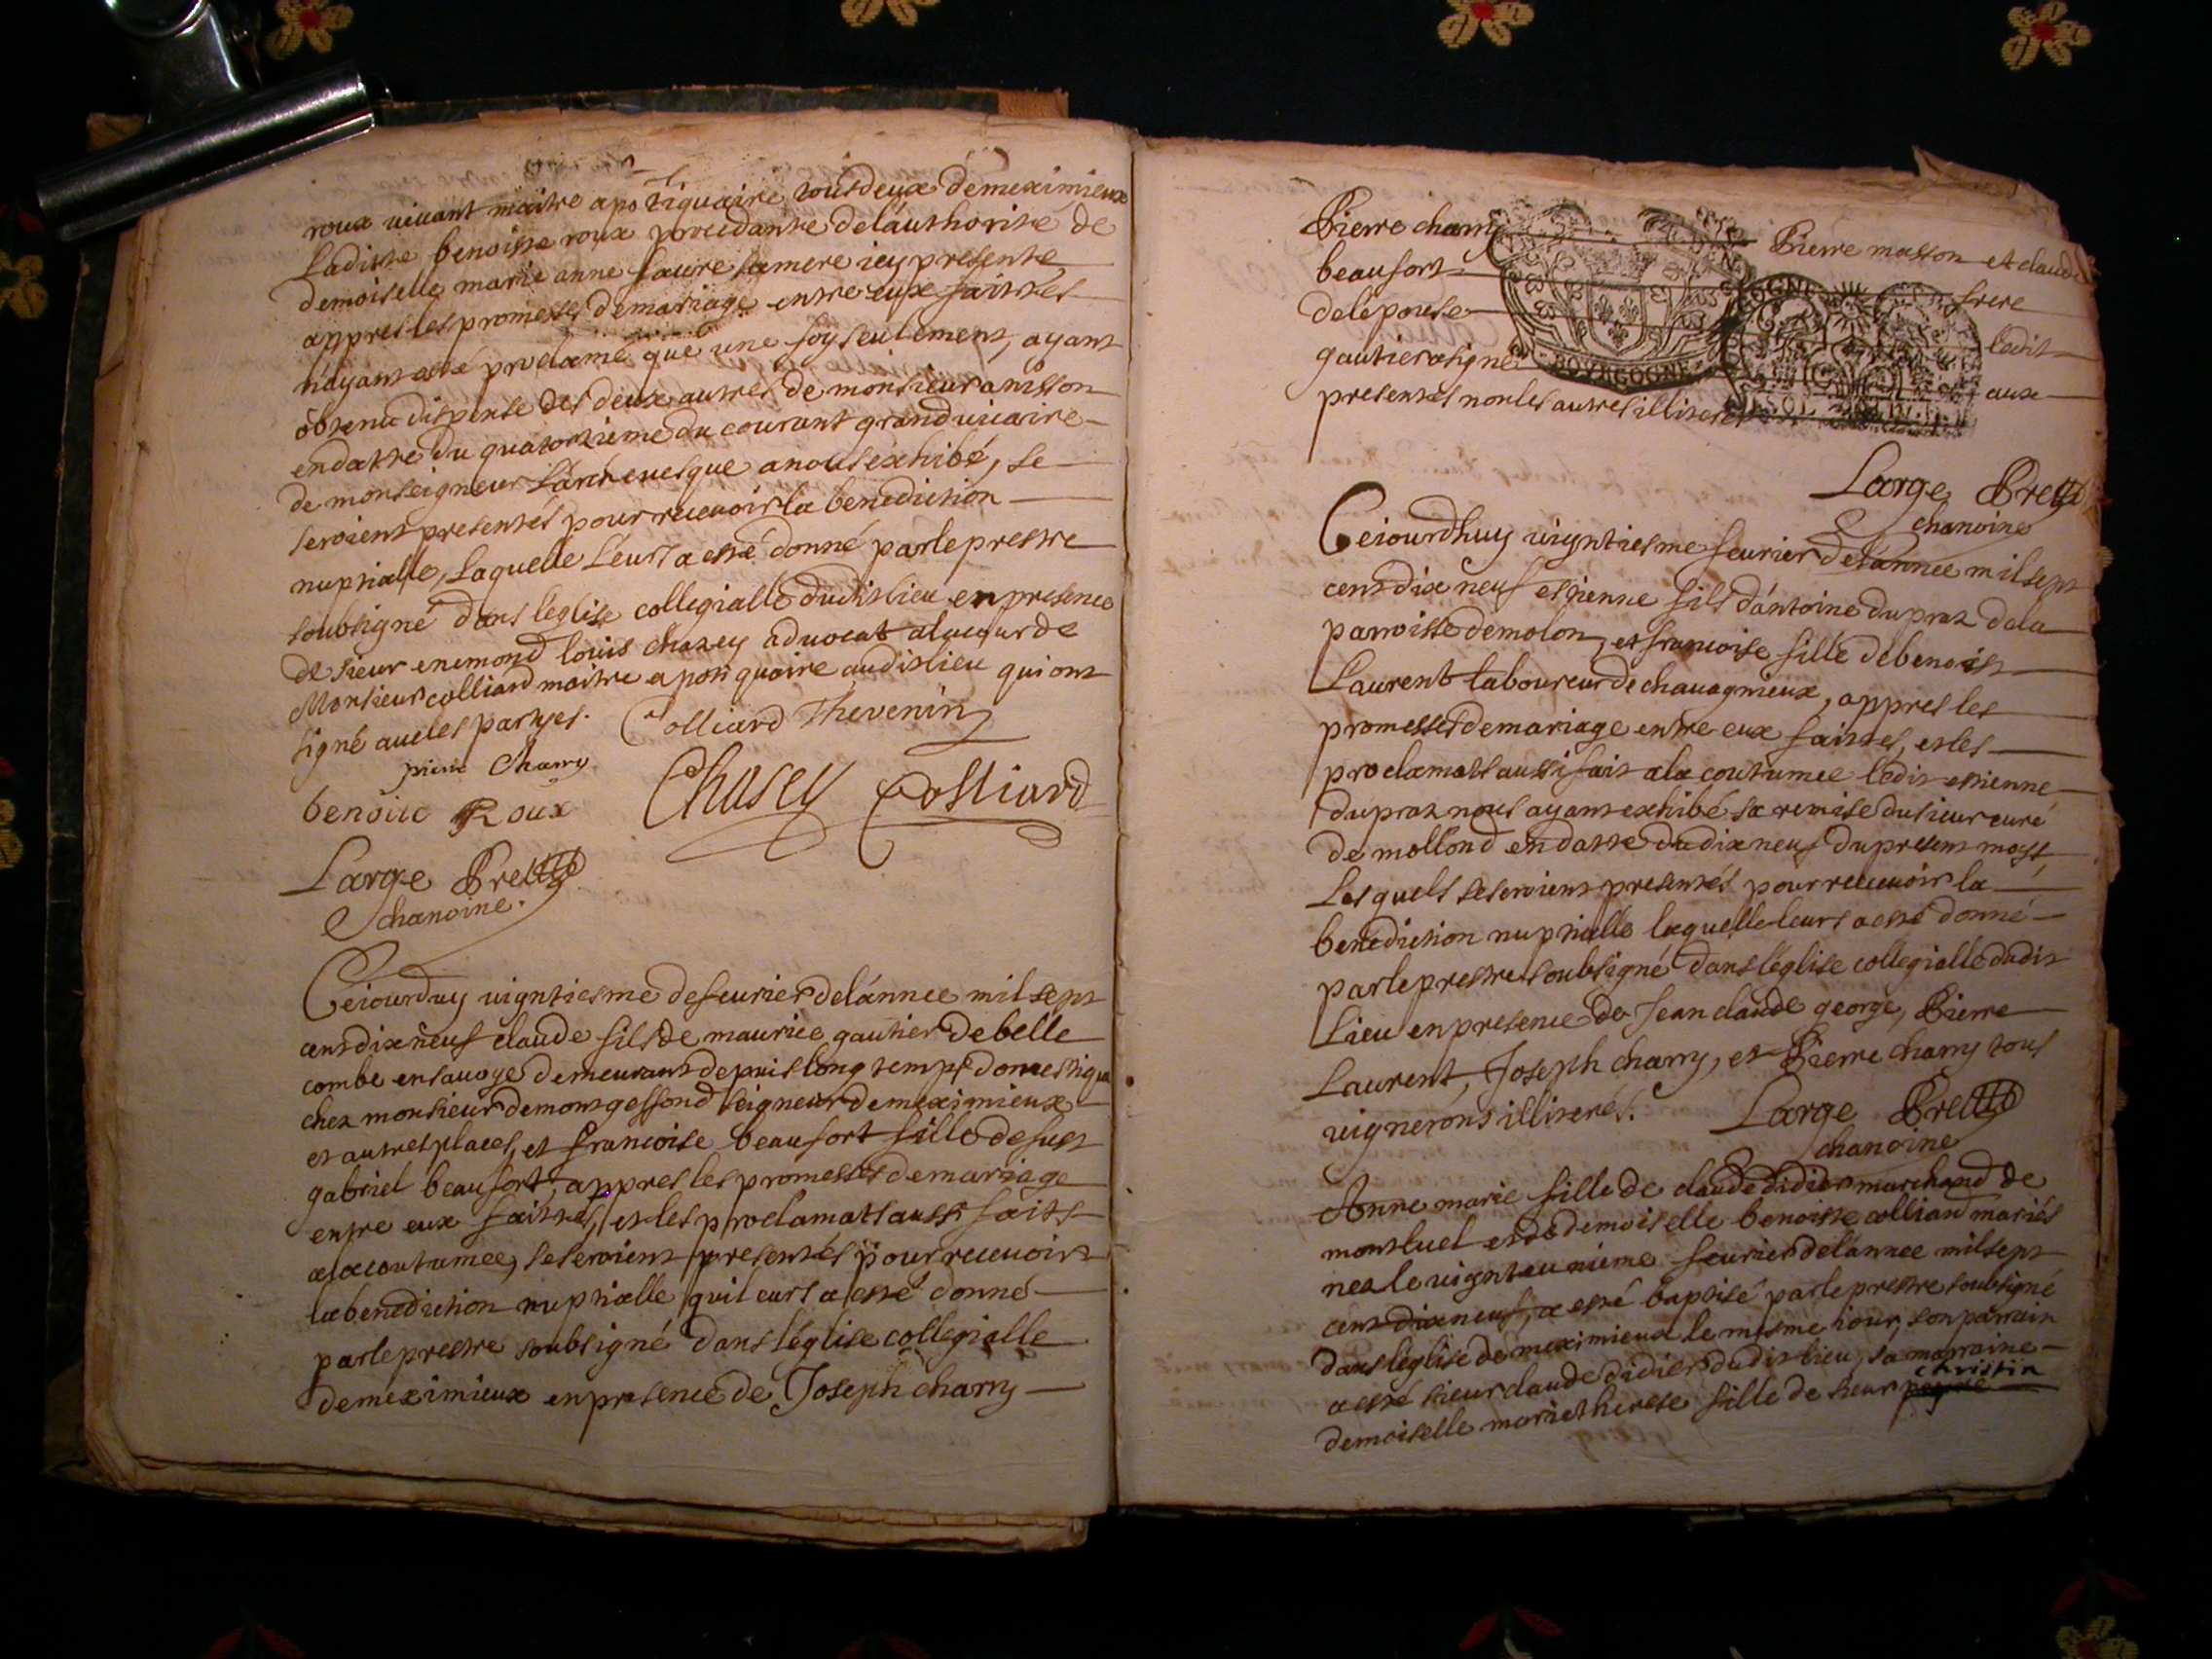 roux vivant maitre apotiquaire, tous deux de meximieux
Laditte benoisse roux procedante de láuthorité de
demoiselle marie anne faure sa mere icy presente
appres les promesses de mariage entre eux faittes
n'ayant esté proclamé que une foy seulement, ayant
obtenu dispense des deux autres de monsieur anisson
en datte du quatorzieme du courant grand vicaire
de monseigneur Lárchevesque a nous exhibé, se
seroient presentés pour recevoir la benediction
nuptialle, Laquelle Leurs a esté donné par le prestre
soubsigné dans léglise collegialle dudit lieu en presence
de sieur enemond louis chazey advocat a la cour de
Monsieur colliard maitre apotiquaire audit lieu qui ont
signé avec les partyes. Colliard Thevenin
pierre Charry
benoite Roux Chasey Colliard
Large Prettre
chanoine.
Ceiourduy vigntiesme de feurier de lánnee mil sept
cent dix neuf claude fils de maurice gautier de belle
combe en savoye demeurant depuis long temps domestique
chez monsieur de montgeffond seigneur de meximieux
et autres places, et francoise beaufort fille de fut
gabriel beaufort, appres les promesses de mariage
entre eux faittes, et les proclamats aussi faits
a la coutumee, se seroient presentés pour recevoir
la benediction nuptialle qui leurs a esté donné
par le prestre soubsigné dans léglise collegialle
de meximieux en presence de Joseph charry
Pierre charry Pierre masson et claude
beaufort frere
de lépouse ledit
gautier a signé aux
BOURGOGNE
presentes non les autres illiterés
Large Prettre
chanoine
Ceiourdhuy vigntiesme feurier de lánnee mil sept
cent dix neuf estienne fils dántoine dupraz de la
parroisse de molon, et francoise fille de benoist
Laurent laboureur de chavagnieux, appres les
promesses de mariage entre eux faittes, et les
proclamats aussi fait a la coutumee ledit estienne
dupraz nous ayant exhibé sa remise du sieur curé
de mollond en datte du dix neuf du present moys,
Lesquels se seroient presentés pour recevoir la
benediction nuptialle laquelle leurs a esté donné
par le prestre soubsigné dans léglise collegialle dudit
Lieu en presence de Jean claude george, Pierre
Laurent, Joseph charry, et Pierre charry tous
vignerons illiterés. Large Prettre
chanoine
Anne marie fille de claude didier marchand de
montluel et de demoiselle benoisse colliard mariés
nez le vignteunieme feurier de lánnee mil sept
cent dix neuf, a esté baptisé par le prestre soubsigné
dans léglise de meximieux le mesme iour, son parrain
a esté sieur claude didier dudit lieu, sa marraine
christin
demoiselle marie therese fille de sieur